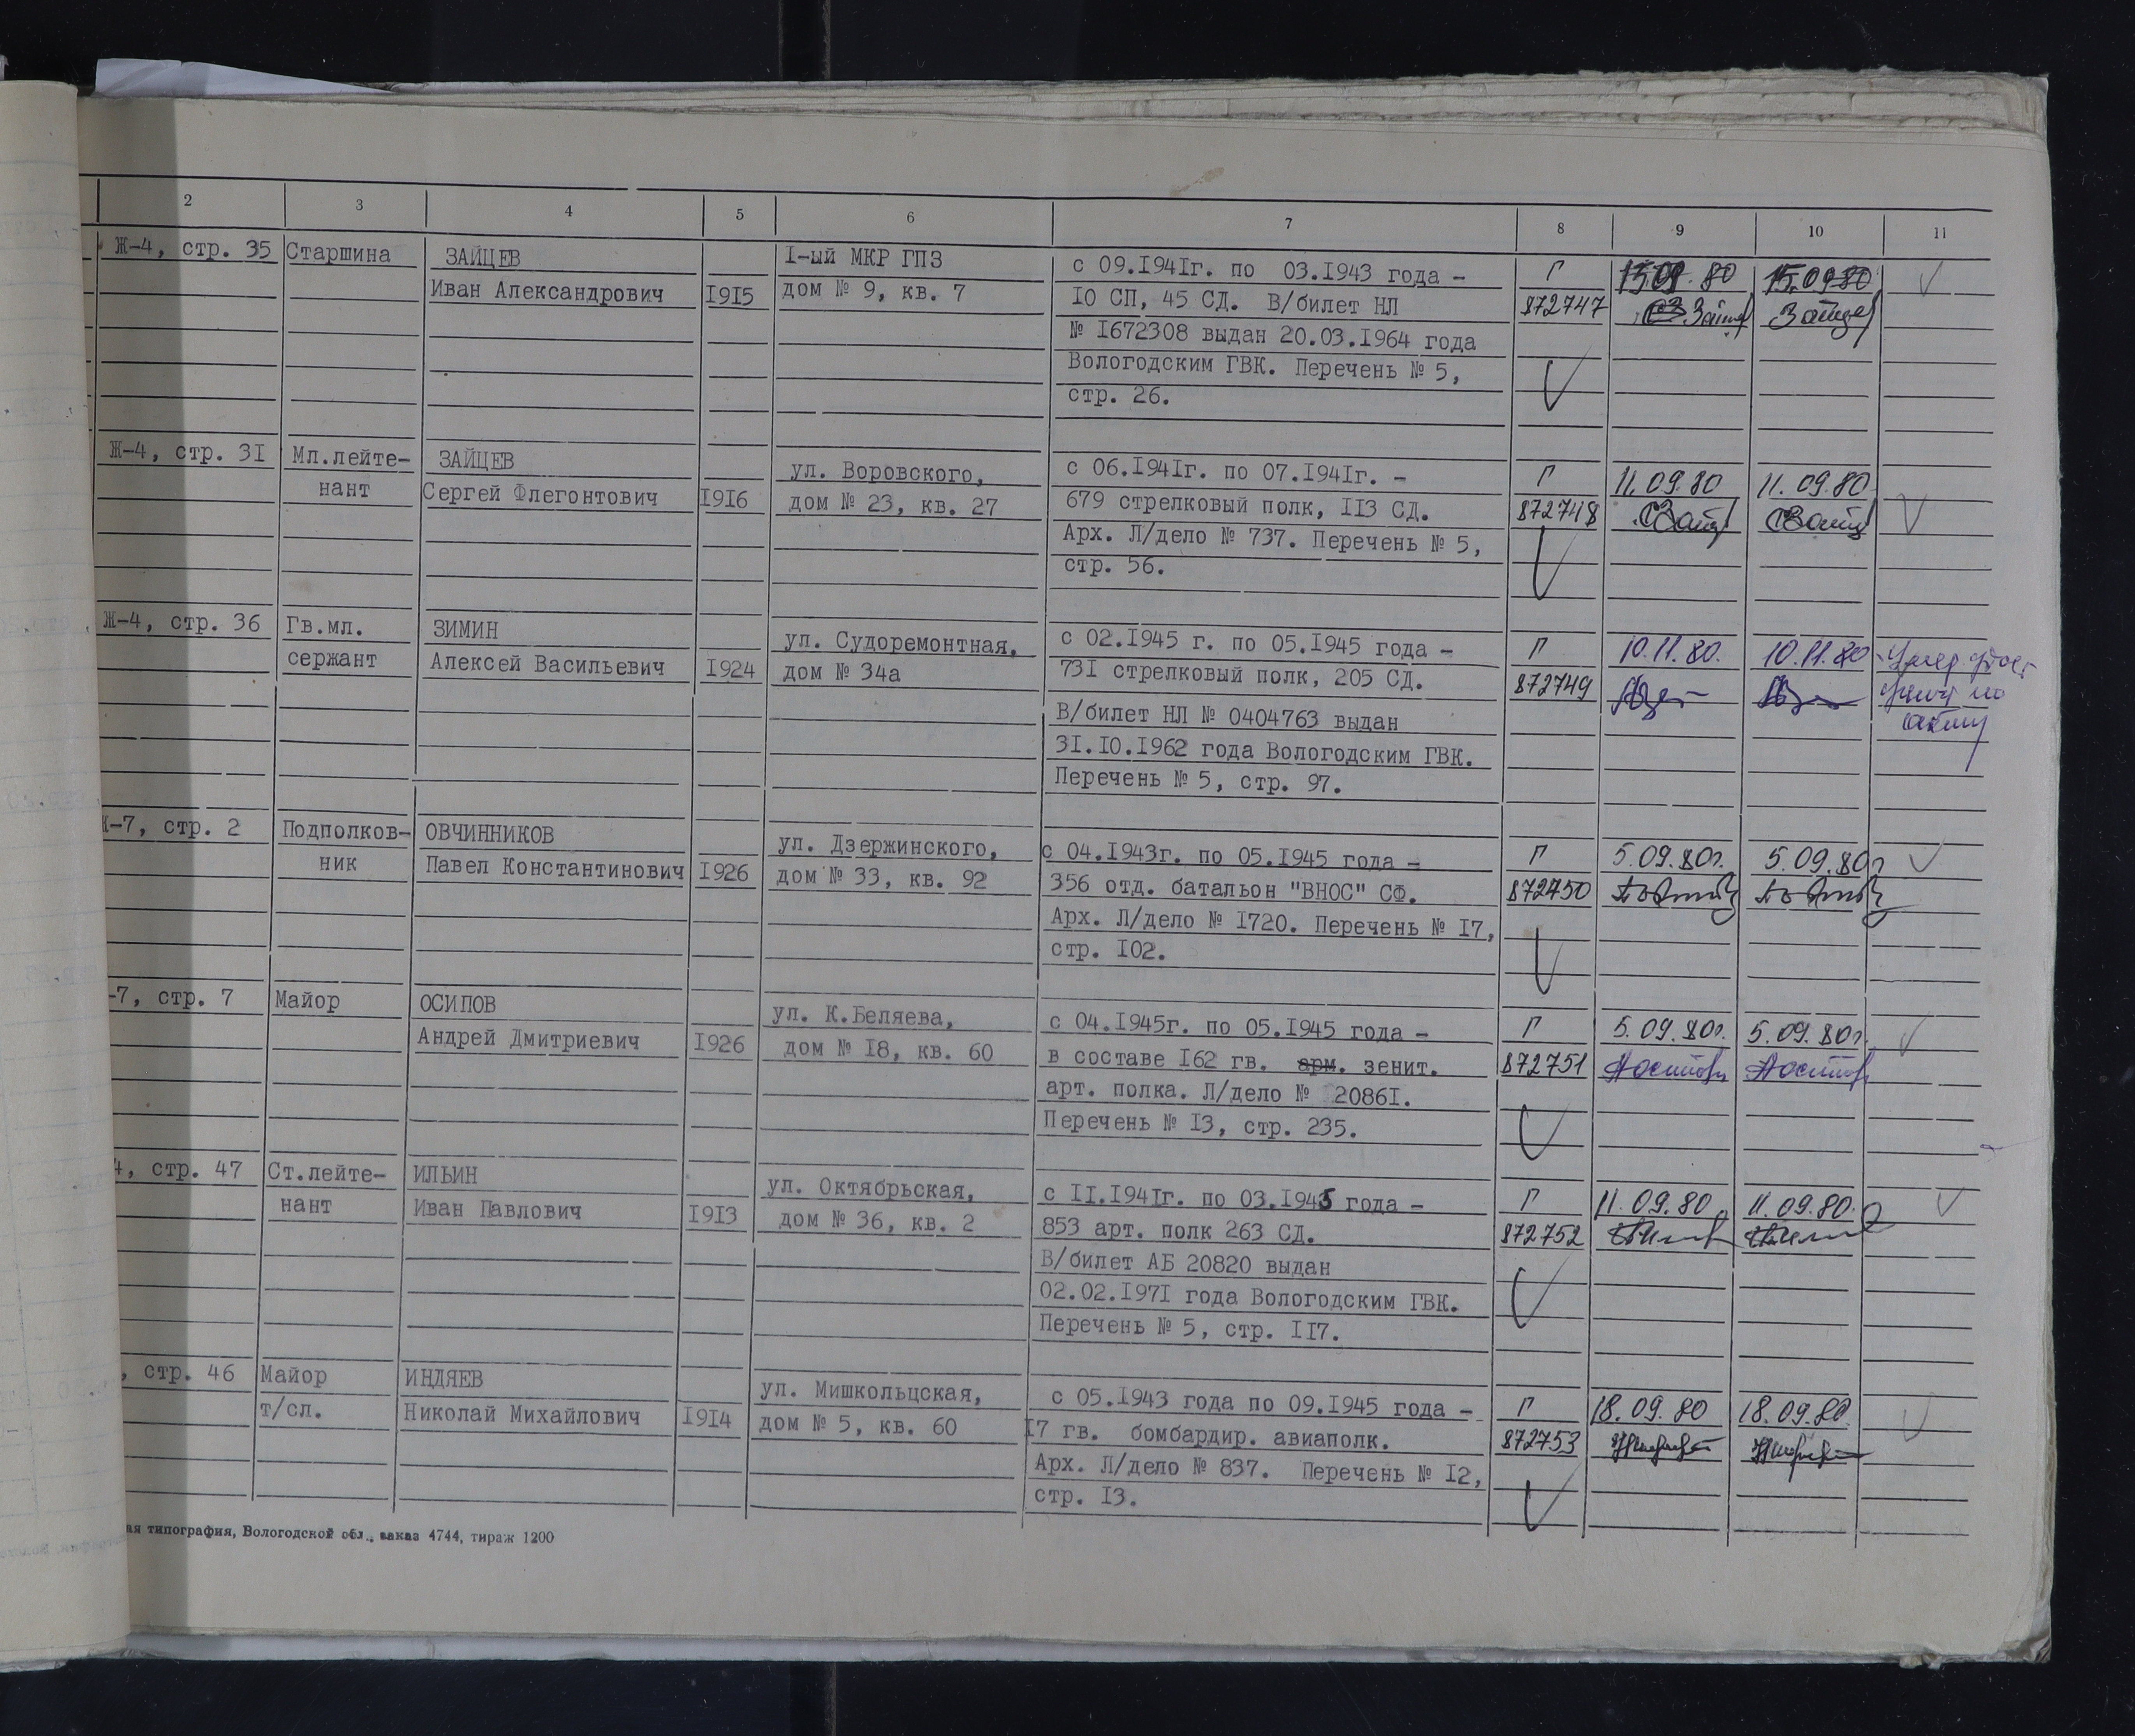 2 3 4 5 6 7 8 9 10 11
Ж-4, стр. 35 Старшина ЗАЙЦЕВ I-ый МКР ГПЗ с 09.I94Iг. по 03.I943 года - Г 15.09.80 15.09.80
Иван Александрович I9I5 дом № 9, кв. 7 I0 СП, 45 СД. В/билет НЛ 872747 Зайцев
№ I672308 выдан 20.03.I964 года
Вологодским ГВК. Перечень № 5,
стр. 26.
Ж-4, стр. 3I Мл.лейте- ЗАЙЦЕВ ул. Воровского, с 06.I94Iг. по 07.I94Iг. - Г 11.09.80 11.09.80
нант Сергей Флегонтович I9I6 дом № 23, кв. 27 679 стрелковый полк, II3 СД. 872748
Арх. Л/дело № 737. Перечень № 5,
стр. 56.
Ж-4, стр. 36 Гв.мл. ЗИМИН ул. Судоремонтная, с 02.I945 г. по 05.I945 года - Г 10.11.80. 10.11.80
сержант Алексей Васильевич I924 дом № 34а 73I стрелковый полк, 205 СД. 872749
В/билет НЛ № 0404763 выдан
3I.I0.I962 года Вологодским ГВК.
Перечень № 5, стр. 97.
-7, стр. 2 Подполков- ОВЧИННИКОВ ул. Дзержинского, с 04.I943г. по 05.I945 года - Г 5.09.80г. 5.09.80г
ник Павел Константинович I926 дом № 33, кв. 92 356 отд. батальон "ВНОС" СФ. 872750
Арх. Л/дело № I720. Перечень № I7,
стр. I02.
-7, стр. 7 Майор ОСИПОВ ул. К.Беляева, с 04.I945г. по 05.I945 года - Г 5.09.80г. 5.09.80г.
Андрей Дмитриевич I926 дом № I8, кв. 60 в составе I62 гв. арм. зенит. 872751
арт. полка. Л/дело № 2086I.
Перечень № I3, стр. 235.
4, стр. 47 Ст.лейте- ИЛЬИН ул. Октябрьская, с II.I94Iг. по 03.I945 года - Г 11.09.80 11.09.80.
нант Иван Павлович I9I3 дом № 36, кв. 2 853 арт. полк 263 СД. 872752
В/билет АБ 20820 выдан
02.02.I97I года Вологодским ГВК.
Перечень № 5, стр. II7.
, стр. 46 Майор ИНДЯЕВ ул. Мишкольцская, с 05.I943 года по 09.I945 года - Г 18.09.80 18.09.80.
т/сл. Николай Михайлович I9I4 дом № 5, кв. 60 I7 гв. бомбардир. авиаполк. 872753
Арх. Л/дело № 837. Перечень № I2,
стр. I3.
ая типография, Вологодской обл., заказ 4744, тираж 1200